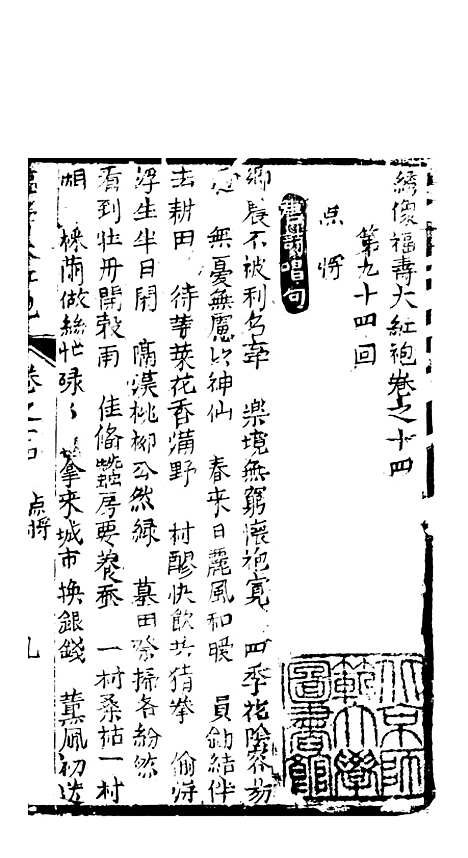 綉像福壽大紅袍卷之十四
第九十四回
点将
唱句
鄉農不被利名牽 樂境無窮懷抱寬 四季花陰容易
過 無憂無慮比神仙 春來日麗風和暖 員鋤結伴
去耕田 待等菜花香滿野 村醪快飲共猜拳 偷得
浮生半日閒 隔溪桃柳公然綠 墓田祭掃各紛然
看到牡丹開穀雨 佳脩蠶房要養蚕 一村桑柘一村
烟 採繭做絲忙碌〻 拿來城市換銀錢 薰風初送
卷之十四 点将 九
北京師範大學圖書館